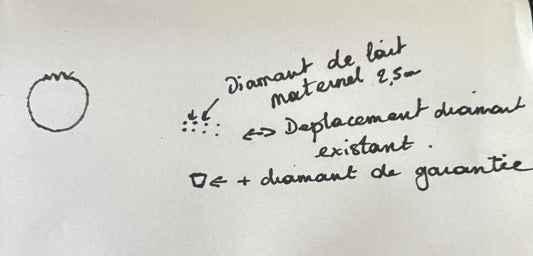 Diamant de lait
maternel 2,5mm
<-> Deplacement diamant
existant.
← + diamant de garantie